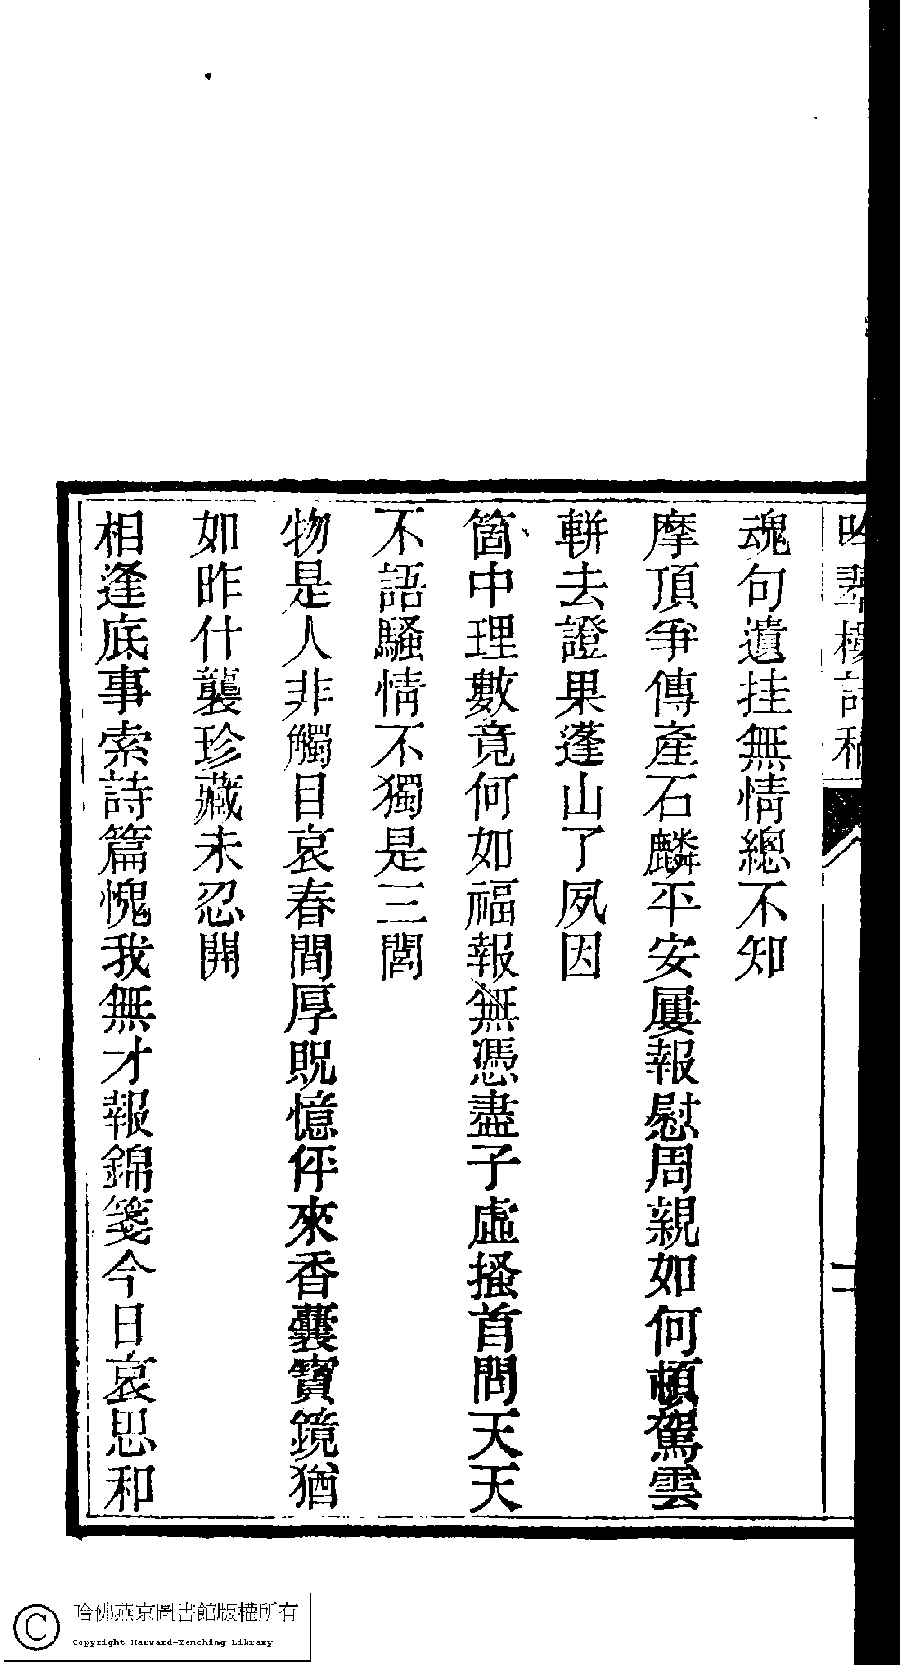 魂句遺挂無情總不知
摩頂爭傳產石麟平安屢報慰周親如何頓駕雲
軿去證果蓬山了夙因
箇中理數竟何如福報無憑盡子虛搔首問天天
不語騷情不獨是三閭
物是人非觸目哀春間厚貺憶伻來香囊寶鏡猶
如昨什襲珍藏未忍開
相逢底事索詩篇愧我無才報錦箋今日哀思和
哈佛燕京圖書館版權所有
Copyright Harvard-Yenching Library